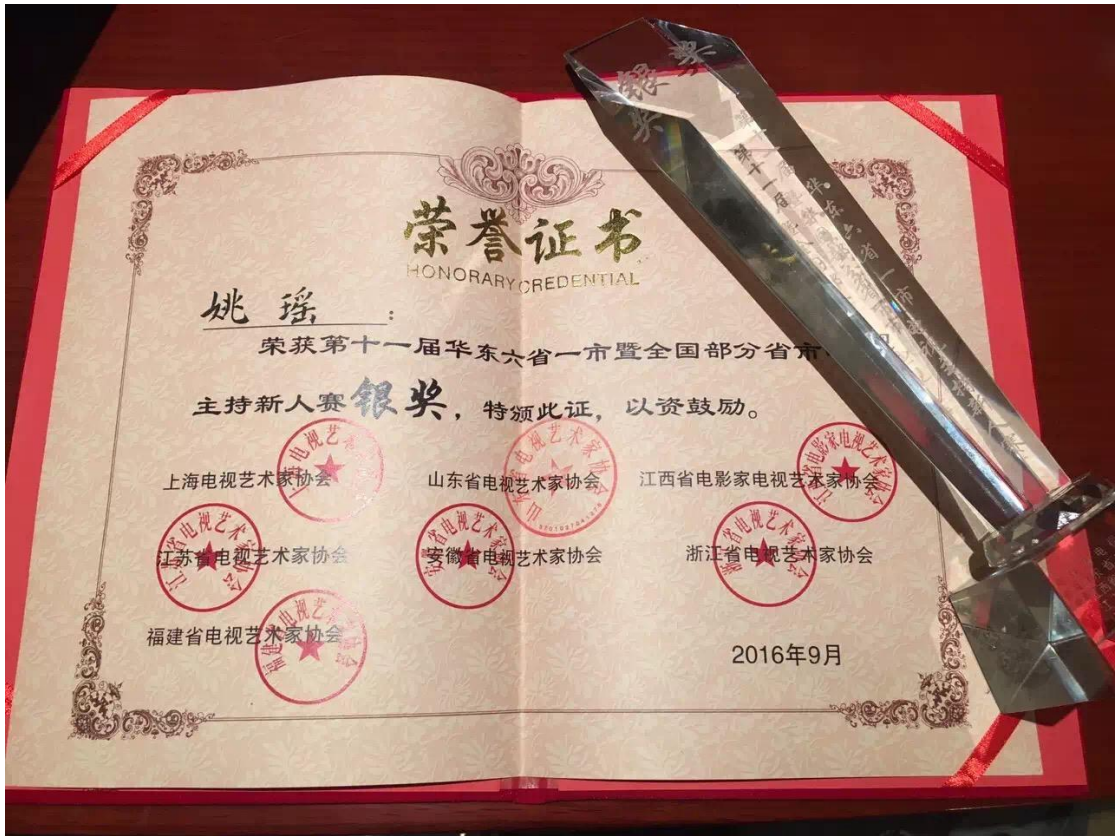 荣誉证书
HONORARY CREDENTIAL
姚瑶：
荣获第十一届华东六省一市暨全国部分省市
主持新人赛银奖，特颁此证，以资鼓励。
上海电视艺术家协会 山东省电视艺术家协会 江西省电影家电视艺术家协会
江苏省电视艺术家协会 安徽省电视艺术家协会 浙江省电视艺术家协会
福建省电视艺术家协会
2016年9月
银奖
第十一届华东六省一市